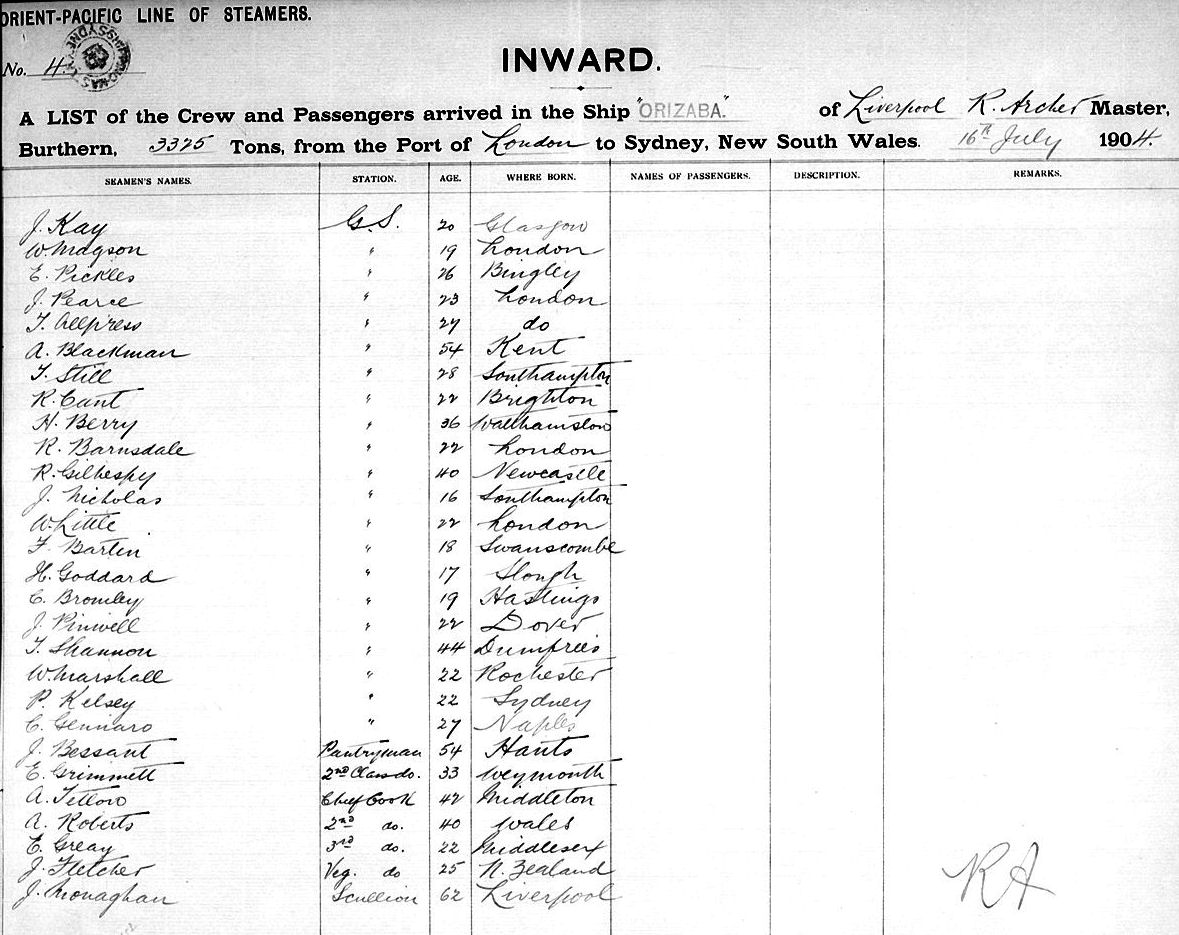 ORIENT-PACIFIC LINE OF STEAMERS.
No. 4
INWARD.
A LIST of the Crew and Passengers arrived in the Ship "ORIZABA." of Liverpool R. Archer Master,
Burthern, 3325 Tons, from the Port of London to Sydney, New South Wales. 16th July 1904.
SEAMEN'S NAMES. STATION. AGE. WHERE BORN. NAMES OF PASSENGERS. DESCRIPTION. REMARKS.
J. Kay G.S. 20 Glasgow
W. Mogson " 19 London
E. Pickles " 26 Bingley
J. Pearce " 23 London
T. Allpress " 27 do
A. Blackman " 54 Kent
T. Still " 28 Southampton
R. Cant " 22 Brighton
H. Berry " 36 Walthamstow
R. Barnsdale " 22 London
R. Gilhespy " 40 Newcastle
J. Nicholas " 16 Southampton
W. Little " 22 London
F. Bartin " 18 Swanscombe
H. Goddard " 17 Slough
C. Bromley " 19 Hastings
J. Pinwell " 22 Dover
T. Shannon " 44 Dumfries
W. Marshall " 22 Rochester
P. Kelsey " 22 Sydney
C. Gennaro " 27 Naples
J. Bessant Pantryman 54 Hants
E. Grimmett 2nd Class do. 33 Weymouth
A. Tetlow Chief Cook 42 Middleton
A. Roberts 2nd do. 40 Wales
E. Greay 3rd do. 22 Middlesex
J. Fletcher Veg. do 25 N. Zealand
J. Monaghan Scullion 62 Liverpool
RA